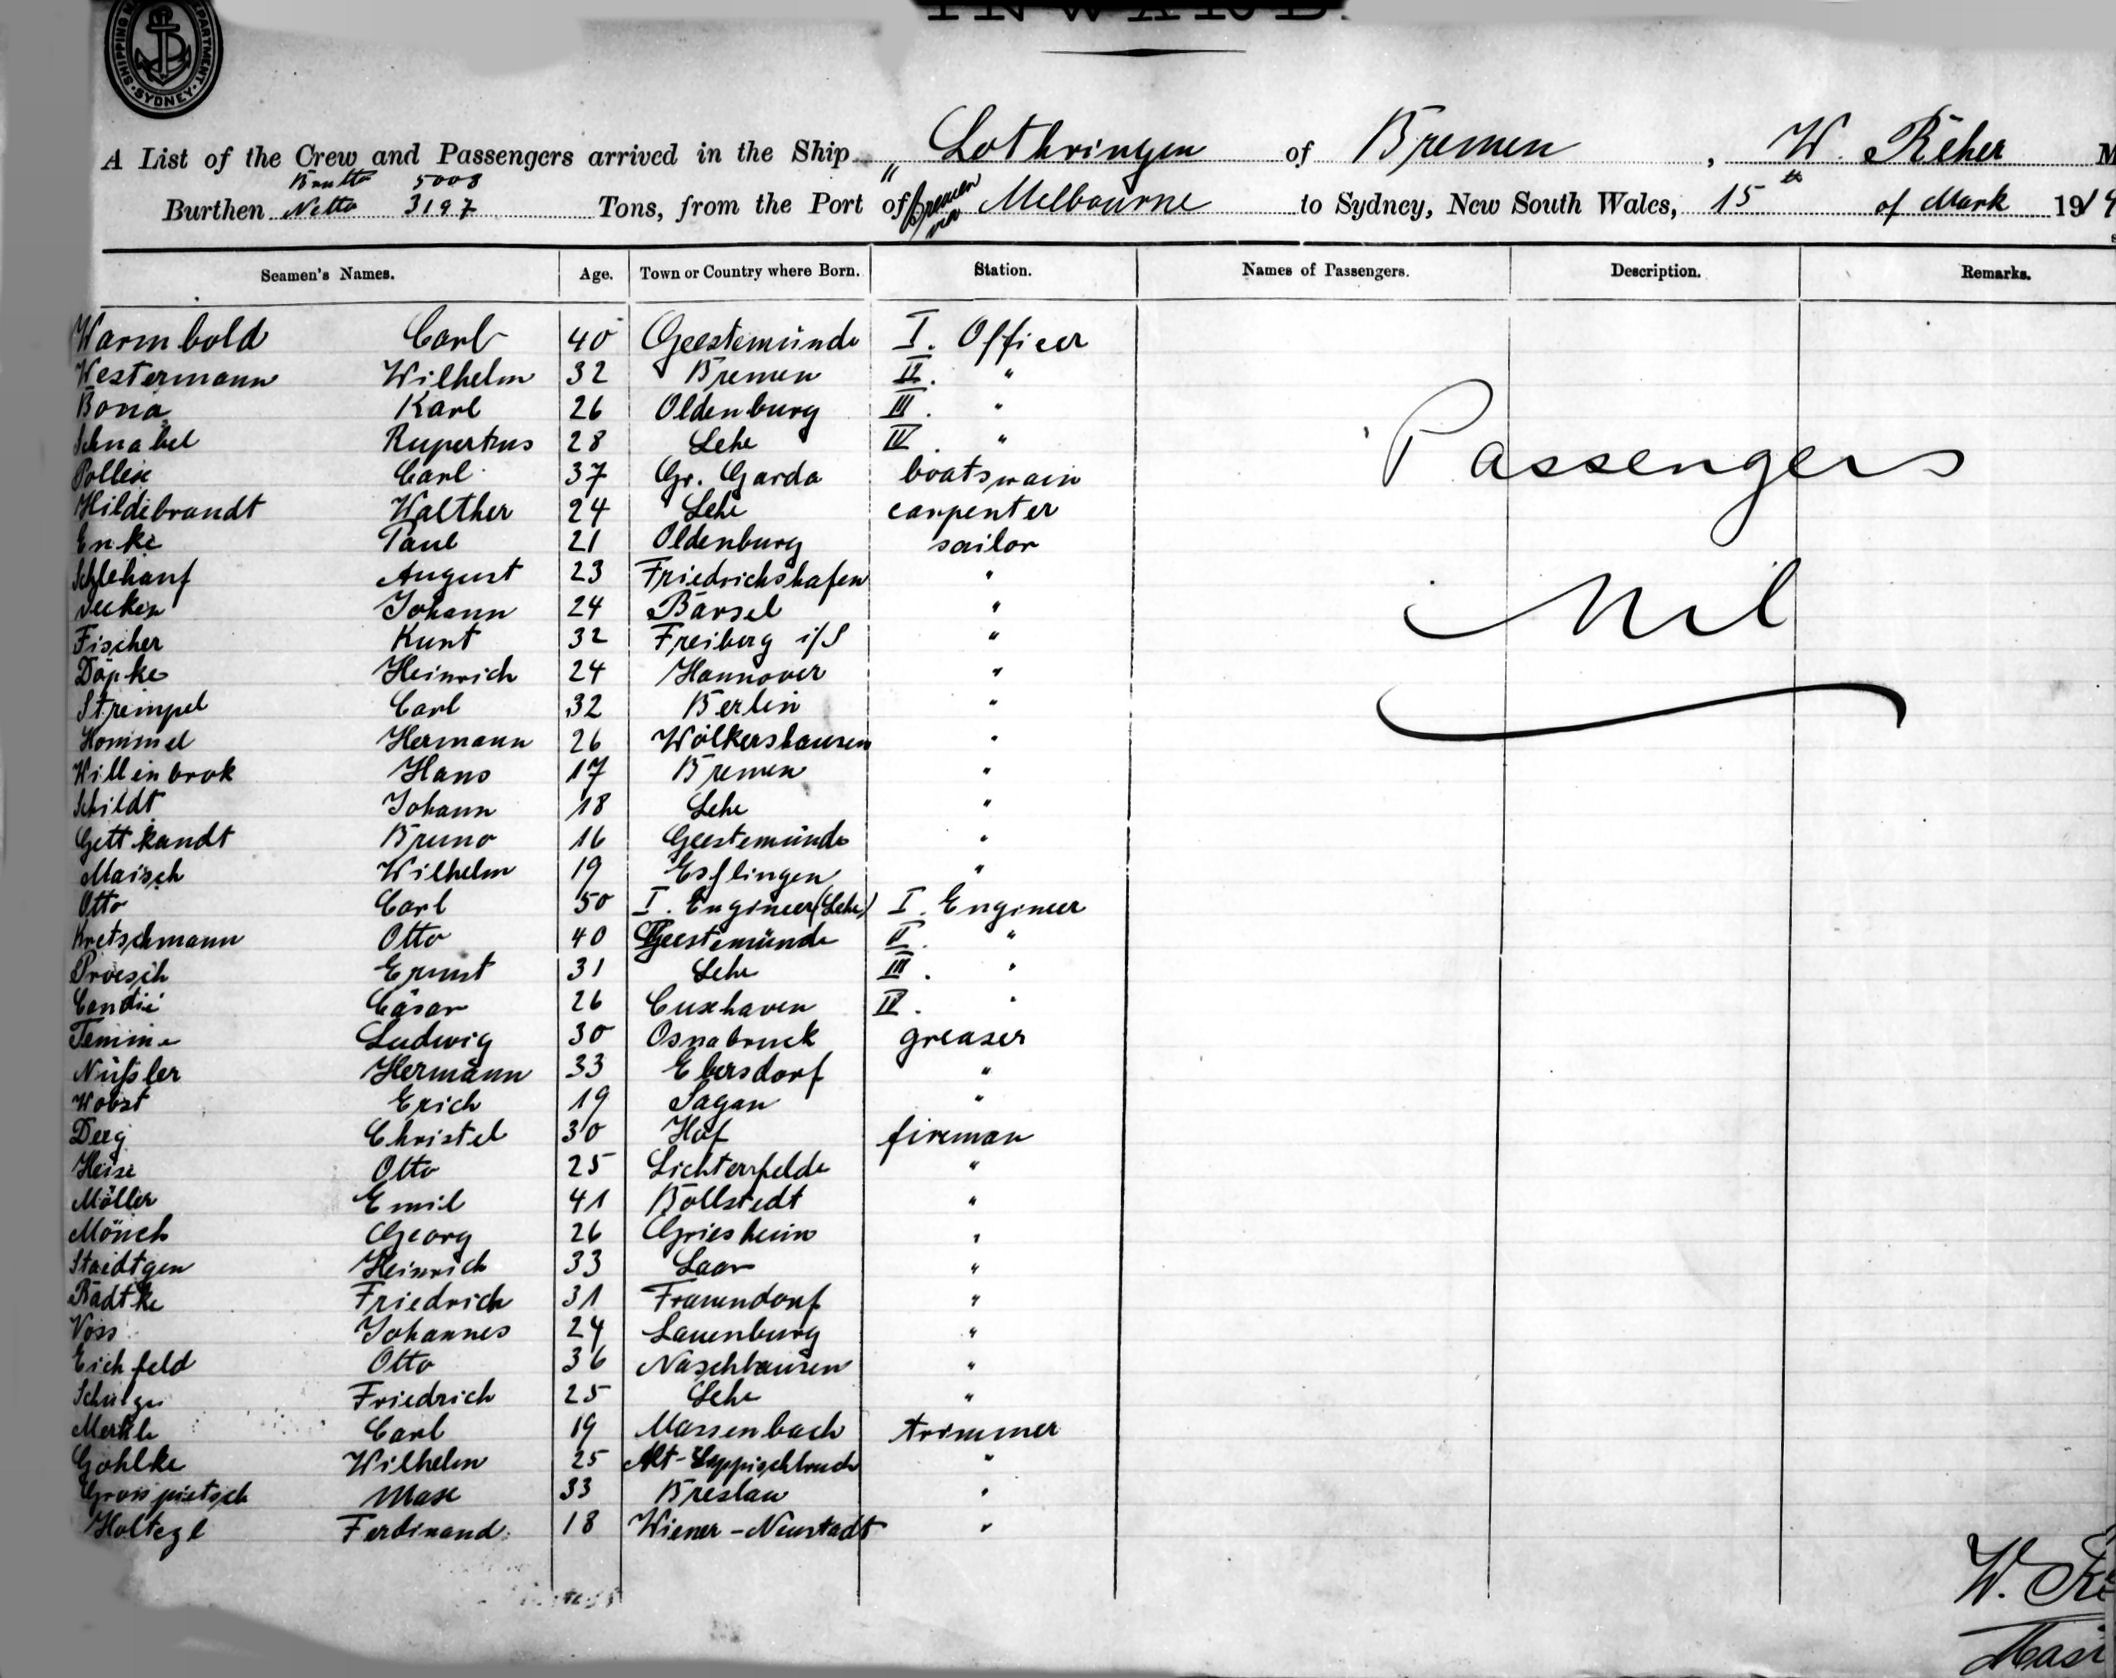 INWARD.
SHIPPING DEPARTMENT SYDNEY
A List of the Crew and Passengers arrived in the Ship „ Lothringen of Bremen, W. Reher M
Burthen Brutto 5008 Netto 3197 Tons, from the Port of Bremen via Melbourne to Sydney, New South Wales, 15th of Mark 191
Seamen's Names. Age. Town or Country where Born. Station. Names of Passengers. Description. Remarks.
Warmbold Carl 40 Geestemünde I. Officer
Westermann Wilhelm 32 Bremen II. "
Bona Karl 26 Oldenburg III. "
Schnabel Rupertus 28 Lehe IV. "
Carl 37 Gr. Garda boatswain
Hildebrandt Walther 24 Lehe carpenter
Enke Paul 21 Oldenburg sailor
Schlehauf August 23 Friedrichshafen "
Johann 24 Barsel "
Fischer Kurt 32 Freiberg i/S "
Döpke Heinrich 24 Hannover "
Strempel Carl 32 Berlin "
Hommel Hermann 26 Wölkershausen "
Willenbrok Hans 17 Bremen "
Schildt Johann 18 Lehe "
Gettkandt Bruno 16 Geestemünde "
Maisch Wilhelm 19 Esslingen "
Otto Carl 50 I. Engineer (Lehe) I. Engineer
Kretschmann Otto 40 Geestemünde II. "
Proesch Ernst 31 Lehe III. "
Cäsar 26 Cuxhaven IV. "
Temme Ludwig 30 Osnabruck greaser
Nüßler Hermann 33 Ebersdorf "
Wobst Erich 19 Sagan "
Deeg Christel 30 Hof fireman
Heise Otto 25 Lichterfelde "
Möller Emil 41 Bollstedt "
Mönch Georg 26 Griesheim "
Staedtgen Heinrich 33 Laar "
Radtke Friedrich 31 Frauendorf "
Voss Johannes 24 Lauenburg "
Eichfeld Otto 36 Naschhausen "
Schulze Friedrich 25 Lehe "
Merkle Carl 19 Massenbach trimmer
Gohlke Wilhelm 25 "
Max 33 Breslau "
Ferdinand 18 Wiener-Neustadt "
Passengers
Nil
W.